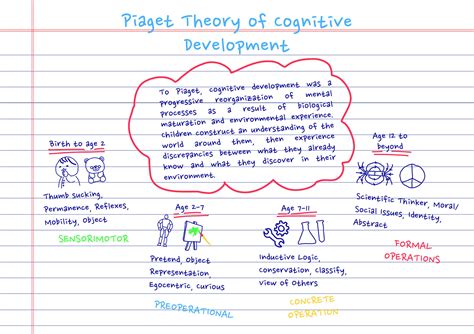 Piaget Theory of Cognitive
Development
To Piaget, cognitive development was a
progressive reorganization of mental
processes as a result of biological
maturation and environmental experience.
children construct an understanding of the
world around them, then experience
discrepancies between what they already
know and what they discover in their
environment.
Birth to age 2
Thumb sucking,
Permanence, Reflexes,
Mobility, Object
SENSORIMOTOR
Age 2-7
Pretend, Object
Representation,
Egocentric, curious
PREOPERATIONAL
Age 7-11
Inductive Logic,
conservation, classify,
view of Others
CONCRETE
OPERATION
Age 12 to
beyond
Scientific Thinker, Moral/
Social Issues, Identity,
Abstract
FORMAL
OPERATIONS